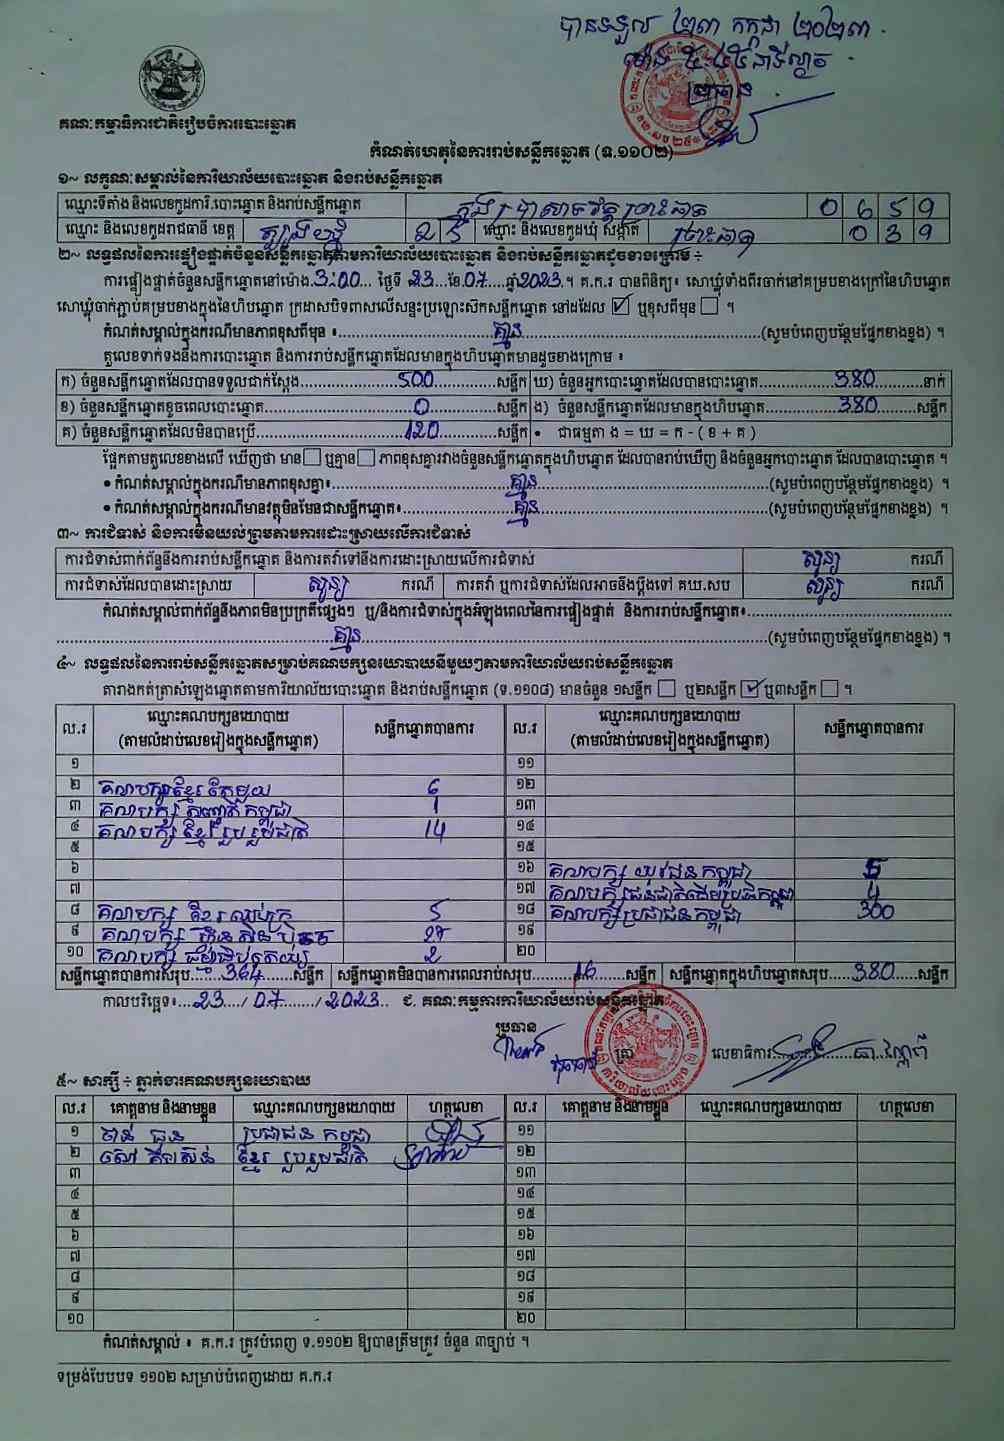 បានទទួល ២៣ កក្កដា ២០២៣
ម៉ោង ៥:៤៥ នាទីល្ងាច
ប្រធាន
គណៈកម្មាធិការជាតិរៀបចំការបោះឆ្នោត
កំណត់ហេតុនៃការរាប់សន្លឹកឆ្នោត (ទ.១១០២)
១~ លក្ខណៈសម្គាល់នៃការិយាល័យបោះឆ្នោត និងរាប់សន្លឹកឆ្នោត
ឈ្មោះទីតាំង និងលេខកូដការិ.បោះឆ្នោត និងរាប់សន្លឹកឆ្នោត ក្នុងប្រាសាទវត្តព្រះធាត 0 6 5 9
ឈ្មោះ និងលេខកូដរាជធានី ខេត្ត ត្បូងឃ្មុំ 2 5 ឈ្មោះ និងលេខកូដឃុំ សង្កាត់ ព្រះធាត 0 3 9
២~ លទ្ធផលនៃការផ្ទៀងផ្ទាត់ចំនួនសន្លឹកឆ្នោតតាមការិយាល័យបោះឆ្នោត និងរាប់សន្លឹកឆ្នោតដូចខាងក្រោម ÷
ការផ្ទៀងផ្ទាត់ចំនួនសន្លឹកឆ្នោតនៅម៉ោង 3:00 ថ្ងៃទី 23 ខែ 07 ឆ្នាំ 2023 ។ គ.ក.រ បានពិនិត្យ៖ សោឃ្លុំទាំងពីរចាក់នៅគម្របខាងក្រៅនៃហិបឆ្នោត
សោឃ្លុំចាក់ភ្ជាប់គម្របខាងក្នុងនៃហិបឆ្នោត ក្រដាសបិទពាសលើសន្ទះប្រឡោះស៊កសន្លឹកឆ្នោត នៅដដែល ☑ ឬខុសពីមុន ☐ ។
កំណត់សម្គាល់ក្នុងករណីមានភាពខុសពីមុន ៖ គ្មាន (សូមបំពេញបន្ថែមផ្នែកខាងខ្នង) ។
តួលេខទាក់ទងនឹងការបោះឆ្នោត និងការរាប់សន្លឹកឆ្នោតដែលមានក្នុងហិបឆ្នោតមានដូចខាងក្រោម ៖
ក) ចំនួនសន្លឹកឆ្នោតដែលបានទទួលជាក់ស្តែង 500 សន្លឹក ឃ) ចំនួនអ្នកបោះឆ្នោតដែលបានបោះឆ្នោត 380 នាក់
ខ) ចំនួនសន្លឹកឆ្នោតខូចពេលបោះឆ្នោត 0 សន្លឹក ង) ចំនួនសន្លឹកឆ្នោតដែលមានក្នុងហិបឆ្នោត 380 សន្លឹក
គ) ចំនួនសន្លឹកឆ្នោតដែលមិនបានប្រើ 120 សន្លឹក • ជាធម្មតា ង = ឃ = ក - ( ខ + គ )
ផ្អែកតាមតួលេខខាងលើ ឃើញថា មាន ☐ ឬគ្មាន ☐ ភាពខុសគ្នារវាងចំនួនសន្លឹកឆ្នោតក្នុងហិបឆ្នោត ដែលបានរាប់ឃើញ និងចំនួនអ្នកបោះឆ្នោត ដែលបានបោះឆ្នោត ។
• កំណត់សម្គាល់ក្នុងករណីមានភាពខុសគ្នា៖ គ្មាន (សូមបំពេញបន្ថែមផ្នែកខាងខ្នង) ។
• កំណត់សម្គាល់ក្នុងករណីមានវត្ថុមិនមែនជាសន្លឹកឆ្នោត៖ គ្មាន (សូមបំពេញបន្ថែមផ្នែកខាងខ្នង) ។
៣~ ការជំទាស់ និងការមិនយល់ព្រមតាមការដោះស្រាយលើការជំទាស់
ការជំទាស់ពាក់ព័ន្ធនឹងការរាប់សន្លឹកឆ្នោត និងការតវ៉ាទៅនឹងការដោះស្រាយលើការជំទាស់ សូន្យ ករណី
ការជំទាស់ដែលបានដោះស្រាយ សូន្យ ករណី ការតវ៉ា ឬការជំទាស់ដែលអាចនឹងប្តឹងទៅ គឃ.សប សូន្យ ករណី
កំណត់សម្គាល់ពាក់ព័ន្ធនឹងភាពមិនប្រក្រតីផ្សេងៗ ឬ/និងការជំទាស់ក្នុងអំឡុងពេលនៃការផ្ទៀងផ្ទាត់ និងការរាប់សន្លឹកឆ្នោត៖
គ្មាន (សូមបំពេញបន្ថែមផ្នែកខាងខ្នង) ។
៤~ លទ្ធផលនៃការរាប់សន្លឹកឆ្នោតសម្រាប់គណបក្សនយោបាយនីមួយៗតាមការិយាល័យរាប់សន្លឹកឆ្នោត
តារាងកត់ត្រាសំឡេងឆ្នោតតាមការិយាល័យបោះឆ្នោត និងរាប់សន្លឹកឆ្នោត (ទ.១១០៨) មានចំនួន ១សន្លឹក ☐ ឬ២សន្លឹក ☑ ឬ៣សន្លឹក ☐ ។
ល.រ ឈ្មោះគណបក្សនយោបាយ (តាមលំដាប់លេខរៀងក្នុងសន្លឹកឆ្នោត) សន្លឹកឆ្នោតបានការ ល.រ ឈ្មោះគណបក្សនយោបាយ (តាមលំដាប់លេខរៀងក្នុងសន្លឹកឆ្នោត) សន្លឹកឆ្នោតបានការ
១ ១១
២ គណបក្សខ្មែរតែមួយ 6 ១២
៣ គណបក្ស សញ្ជាតិកម្ពុជា 1 ១៣
៤ គណបក្ស ខ្មែររួបរួមជាតិ 14 ១៤
៥ ១៥
៦ ១៦ គណបក្ស យុវជនកម្ពុជា 5
៧ ១៧ គណបក្សជនជាតិដើមប្រជាធិបតេយ្យកម្ពុជា 4
៨ គណបក្ស ខ្មែរឈប់ក្រ 5 ១៨ គណបក្សប្រជាជនកម្ពុជា 300
៩ គណបក្ស ហ្វ៊ុនស៊ិនប៉ិច 27 ១៩
១០ គណបក្ស ធម្មាធិបតេយ្យ 2 ២០
សន្លឹកឆ្នោតបានការសរុប 364 សន្លឹក សន្លឹកឆ្នោតមិនបានការពេលរាប់សរុប 16 សន្លឹក សន្លឹកឆ្នោតក្នុងហិបឆ្នោតសរុប 380 សន្លឹក
កាលបរិច្ឆេទ៖ 23 / 07 / 2023 ជ. គណៈកម្មការការិយាល័យរាប់សន្លឹកឆ្នោត
ប្រធាន ត្រា លេខាធិការ
៥~ សាក្សី ÷ ភ្នាក់ងារគណបក្សនយោបាយ
ល.រ គោត្តនាម និងនាមខ្លួន ឈ្មោះគណបក្សនយោបាយ ហត្ថលេខា ល.រ គោត្តនាម និងនាមខ្លួន ឈ្មោះគណបក្សនយោបាយ ហត្ថលេខា
១ ចាន់ ធួន ប្រជាជនកម្ពុជា ១១
២ សៅ ខ្មែរ រួបរួមជាតិ ១២
៣ ១៣
៤ ១៤
៥ ១៥
៦ ១៦
៧ ១៧
៨ ១៨
៩ ១៩
១០ ២០
កំណត់សម្គាល់ ៖ គ.ក.រ ត្រូវបំពេញ ទ.១១០២ ឱ្យបានត្រឹមត្រូវ ចំនួន ៣ច្បាប់ ។
ទម្រង់បែបបទ ១១០២ សម្រាប់បំពេញដោយ គ.ក.រ